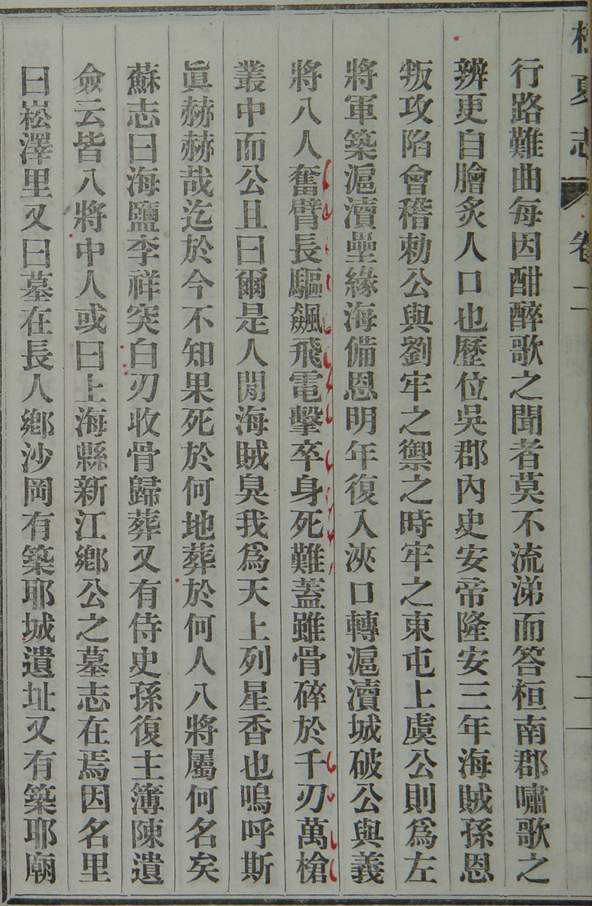 夏志 卷二 二一
行路難曲每因酣醉歌之聞者莫不流涕而答桓南郡嘯歌之
辨更自膾炙人口也歷位吳郡內史安帝隆安三年海賊孫恩
叛攻陷會稽勅公與劉牢之禦之時牢之東屯上虞公則爲左
將軍築滬瀆壘緣海備恩明年復入浹口轉滬瀆城破公與義
將八人奮臂長驅飆飛電擊卒身死難蓋雖骨碎於千刃萬槍
叢中而公且曰爾是人閒海賊臭我爲天上列星香也嗚呼斯
眞赫赫哉迄於今不知果死於何地葬於何人八將屬何名矣
蘇志曰海鹽李祥突白刃收骨歸葬又有侍史孫復主簿陳遺
僉云皆八將中人或曰上海縣新江鄉公之墓志在焉因名里
曰崧澤里又曰墓在長人鄉沙岡有築耶城遺址又有築耶廟